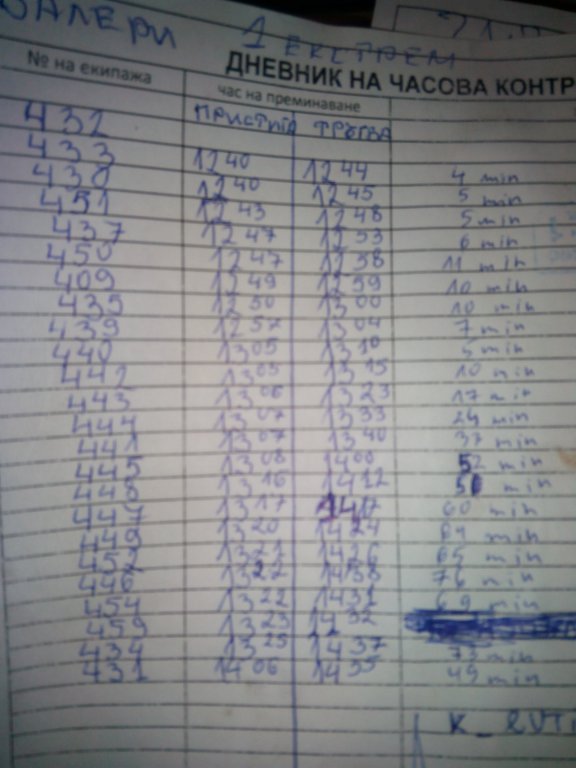 ВАЛЕРИ 1 ЕКСТРЕМ
ДНЕВНИК НА ЧАСОВА КОНТР
№ на екипажа час на преминаване
432 ПРИСТИГА ТРЪГВА
433 12 40 12 44 4 min
430 12 40 12 45 5 min
451 12 43 12 48 5 min
437 12 47 12 53 6 min
450 12 47 12 58 11 min
409 12 49 12 59 10 min
435 12 50 13 00 10 min
439 12 57 13 04 7 min
440 13 05 13 10 5 min
442 13 05 13 15 10 min
443 13 06 13 23 17 min
444 13 07 13 33 min
441 13 07 13 40 min
445 13 08 14 00 52 min
448 13 16 14 12 min
447 13 17 14 17 60 min
449 13 20 14 24 64 min
452 13 21 14 26 65 min
446 13 22 14 38 76 min
454 13 22 14 31 69 min
453 13 23 14 32
434 13 25 14 37 min
431 14 06 14 55 49 min